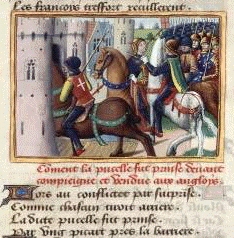 Les francoys tressort recuillerent.
Coment la pucelle fut prinse devant
compiengne et vendue aux angloys.
Lors au conflict et par surprise.
Comme chascun tiroit arriere.
La dicte pucelle fut prinse.
Par ung picart pres la barriere.